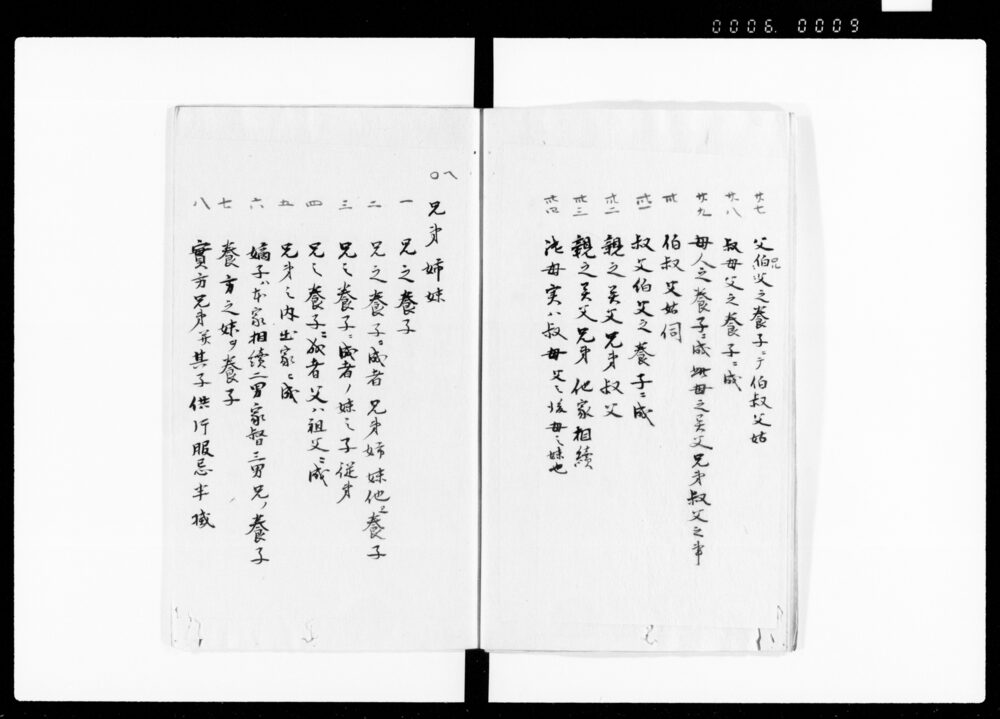 0006.0009
廿七 父伯父兄之養子ニテ伯叔父姑
廿八 叔母父之養子ニ成
廿九 母人之養子ニ成 母之異父兄弟叔父之事
卅 伯叔父姑伺
卅一 叔父伯父之養子ニ成
卅二 親之異父兄弟叔父
卅三 親之異父兄弟他家相續
卅四 母実ハ叔母父之後母之妹也
○八 兄弟姉妹
一 兄之養子
二 兄之養子ニ成者兄弟姉妹他之養子
三 兄之養子ニ成者ノ妹之子従弟
四 兄之養子ニ成者父ハ祖父ニ成
五 兄弟之内出家ニ成
六 嫡子ハ本家相續二男家督三男兄ノ養子
七 養方之妹ヲ養子
八 實方兄弟并其子供片服忌半減